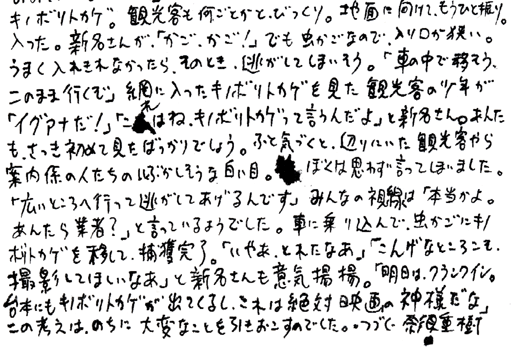 キノボリトカゲ。観光客も何ごとかと、びっくり。地面に向けて、もうひと振り。
入った。新名さんが、「かご、かご!」でも虫かごなので、入り口が狭い。
うまく入れきれなかったら、そのとき、逃がしてしまいそう。「車の中で移そう、
このまま行くぞ」網に入ったキノボリトカゲを見た観光客の少年が
「イグアナだ!」「これはね、キノボリトカゲって言うんだよ」と新名さん。あんた
も、さっき初めて見たばっかりでしょう。ふと気づくと、辺りにいた観光客やら
案内係の人たちのいぶかしそうな白い目。ぼくは思わず言ってしまいました。
「広いところへ行って逃がしてあげるんです」みんなの視線は「本当かよ。
あんたら業者?」と言っているようでした。車に乗り込んで、虫かごにキノ
ボリトカゲを移して、捕獲完了。「いやあ、とれたなあ」「こんげなところこそ、
撮影してほしいなあ」と新名さんも意気揚揚。「明日は、クランクイン。
台本にもキノボリトカゲが出てくるし、これは絶対映画の神様だな」
この考えは、のちに大変なことを引きおこすのでした。・つづく